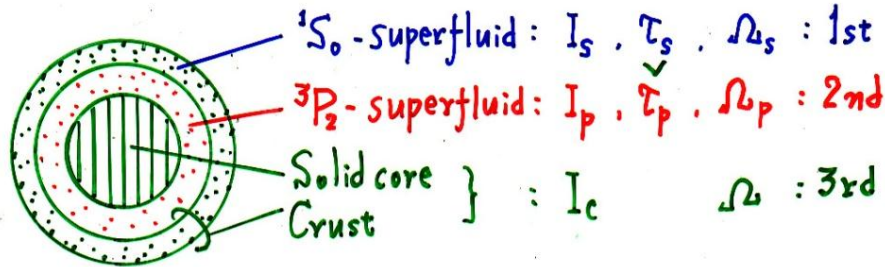 ¹S₀-superfluid : I_s , τ_s , Ω_s : 1st
³P₂-superfluid : I_p , τ_p , Ω_p : 2nd
Solid core } : I_c Ω : 3rd
Crust